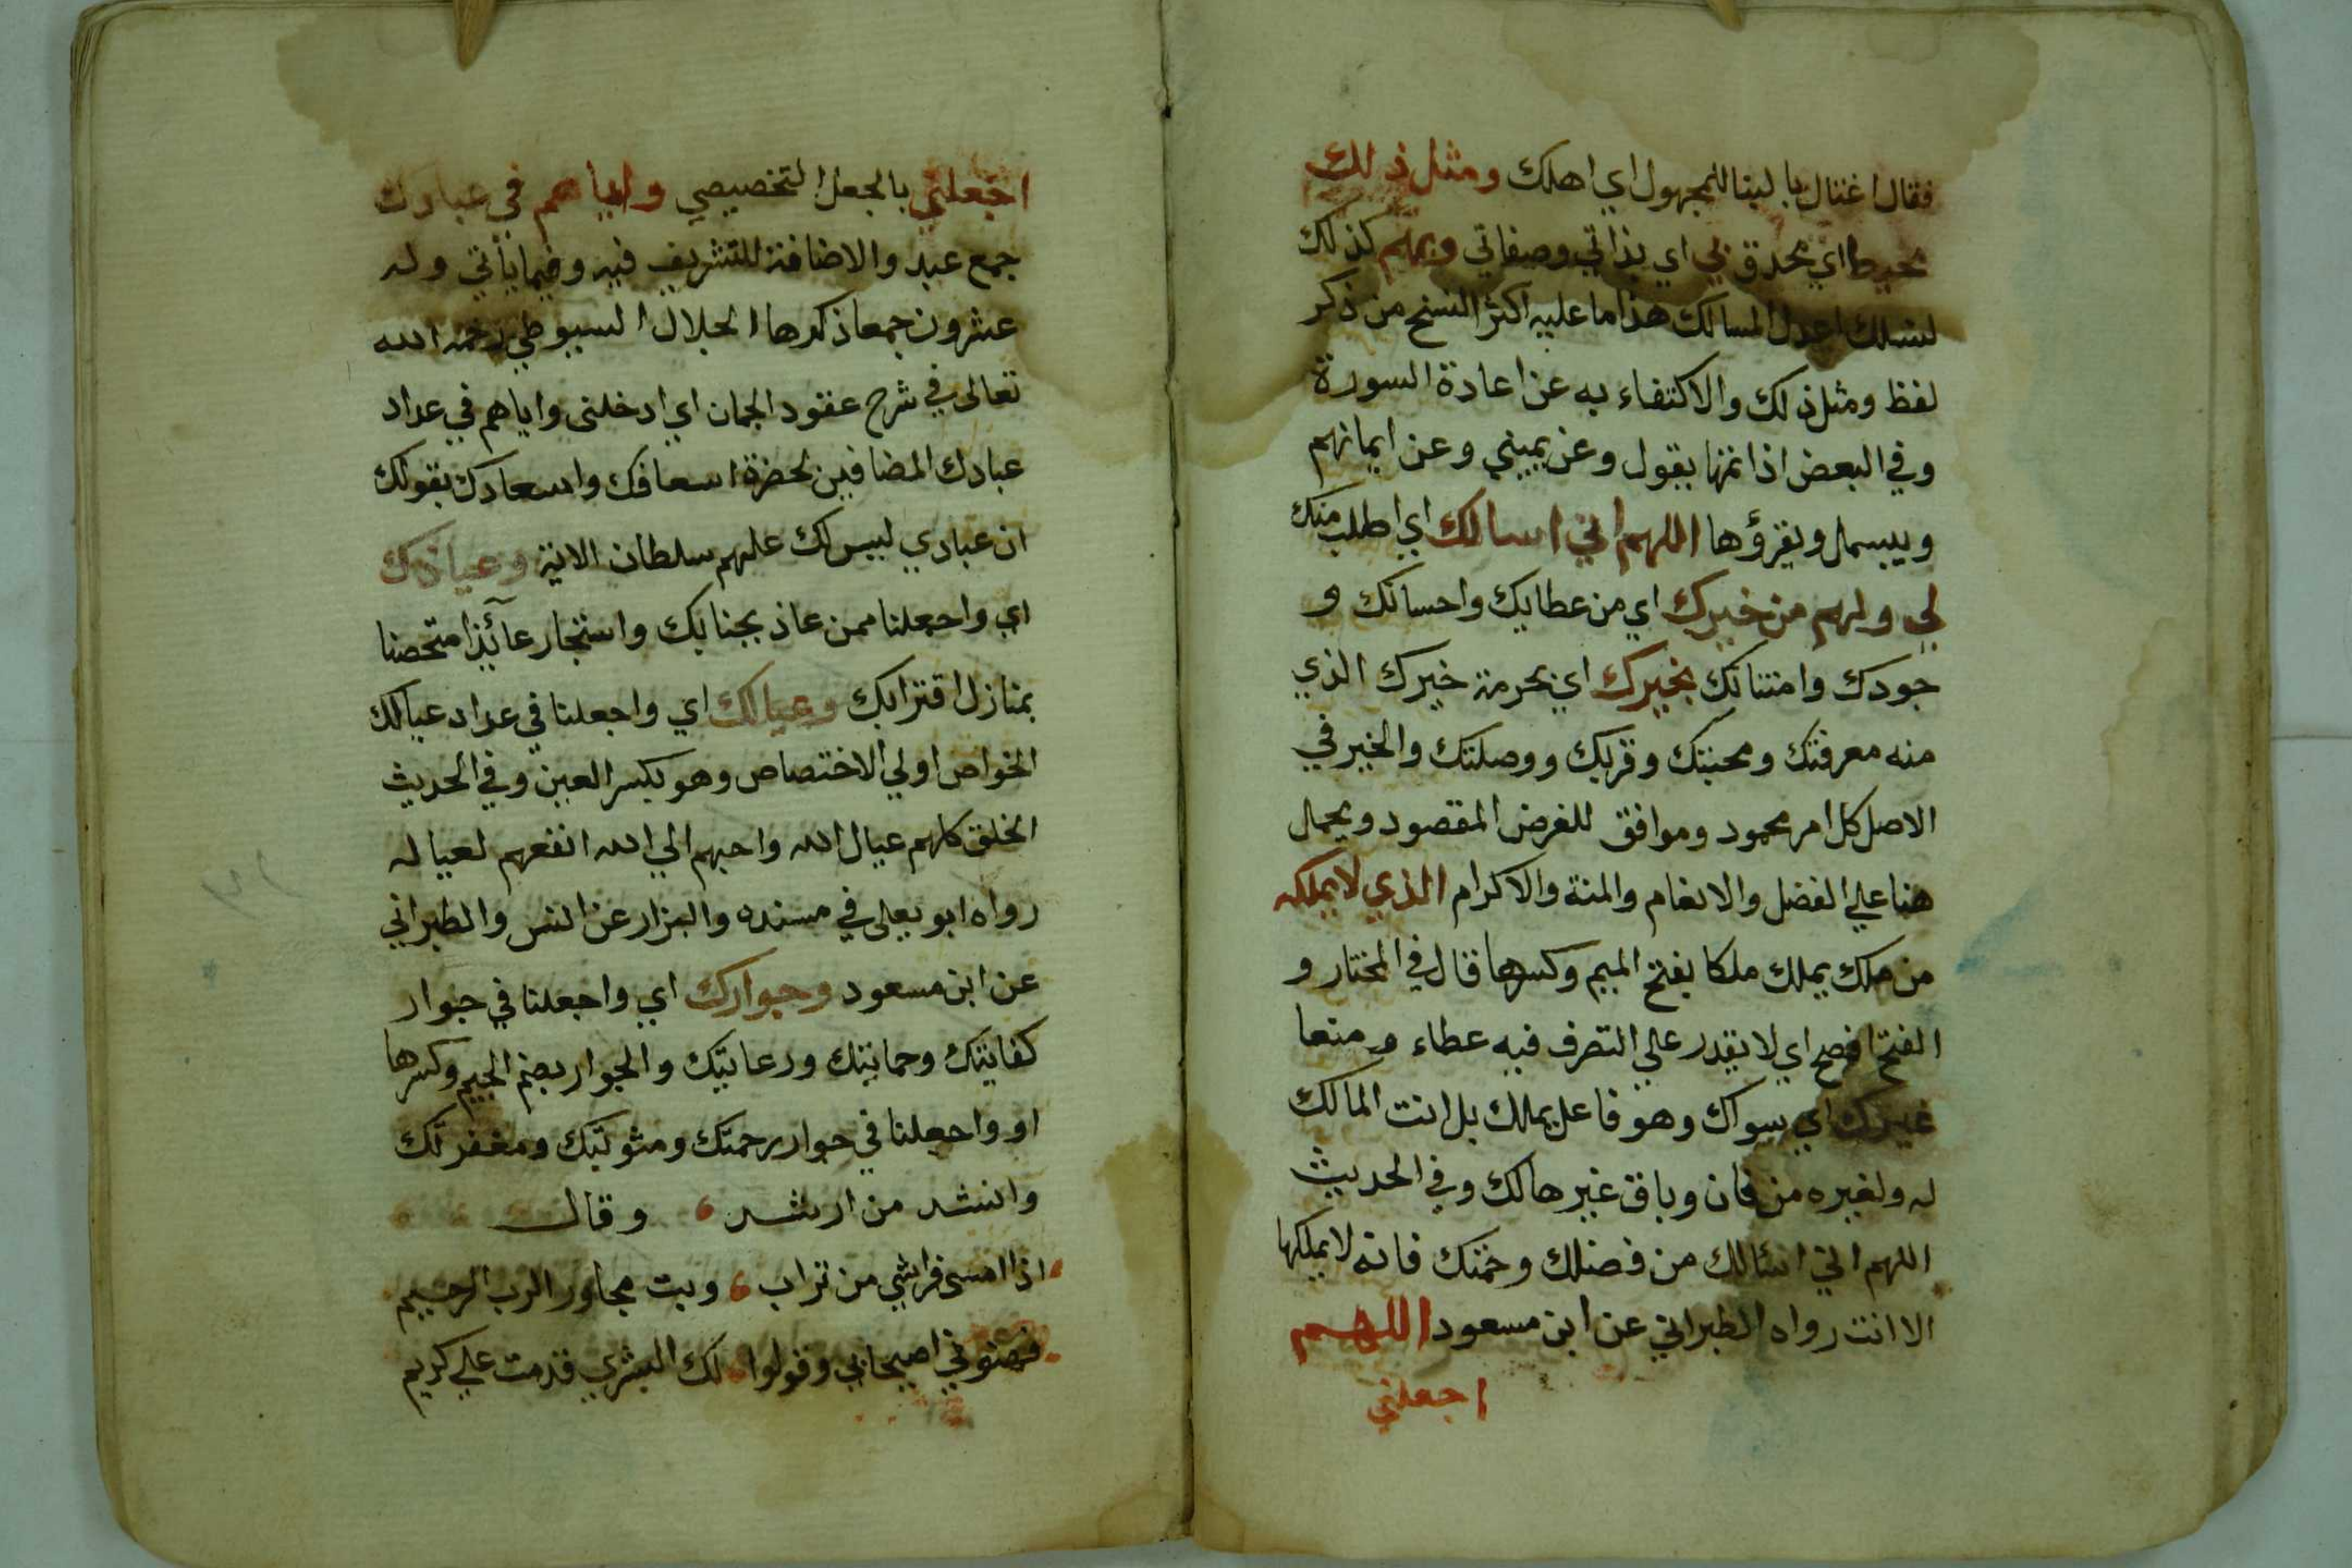 فقال اغتال بالبنا للمجهول اي اهلك ومثل ذلك
محيط اي محدق بي اي بذاتي وصفاتي وبهم كذلك
لنسلك اعدل المسالك هذا ما عليه اكثر النسخ من ذكر
لفظ ومثل ذلك والاكتفاء به عن اعادة السورة
وفي البعض اذا تمها يقول وعن يميني وعن ايمانهم
ويبسمل ويقرؤها اللهم اني اسالك اي اطلب منك
لي ولهم من خيرك اي من عطايك واحسانك و
جودك وامتنانك بخيرك اي بحرمة خيرك الذي
منه معرفتك ومحبتك وقربك ووصلتك والخير في
الاصل كل امر محمود وموافق للغرض المقصود ويحمل
هنا علي الفضل والانعام والمنة والاكرام الذي لا يملكه
من ملك يملك ملكا بفتح الميم وكسرها قال في المختار و
الفتح افصح اي لا يقدر علي التصرف فيه عطاء و منعا
غيرك اي سواك وهو فاعل يملك بل انت المالك
له ولغيره من فان وباق غير هالك وفي الحديث
اللهم اني اسئالك من فضلك رحمتك فانه لا يملكها
الا انت رواه الطبراني عن ابن مسعود اللهم
اجعلني
اجعلني بالجعل التخصيصي واياهم في عبادك
جمع عبد والاضافة للتشريف فيه وفيما يأتي وله
عشرون جمعا ذكرها الجلال السيوطي رحمه الله
تعالى في شرح عقود الجمان اي ادخلني واياهم في عداد
عبادك المضافين لحضرة اسعافك واسعادك بقولك
ان عبادي ليس لك عليهم سلطان الاية وعياذك
اي واجعلنا ممن عاذ بجنابك واستجار عائذا متحصنا
بمنازل اقترابك وعيالك اي واجعلنا في عداد عيالك
الخواص اولي الاختصاص وهو بكسر العين وفي الحديث
الخلق كلهم عيال الله واحبهم الي الله انفعهم لعياله
رواه ابو يعلى في مسنده والبزار عن انس والطبراني
عن ابن مسعود وجوارك اي واجعلنا في جوار
كفايتك وحمايتك ورعايتك والجوار بضم الجيم وكسرها
او واجعلنا في جوار رحمتك ومثوبتك ومغفرتك
وانشد من ارشد وقال
اذا امسى فراشي من تراب وبت مجاور الرب الرحيم
فهنوني اصيحابي وقولوا لك البشري قدمت علي كريم